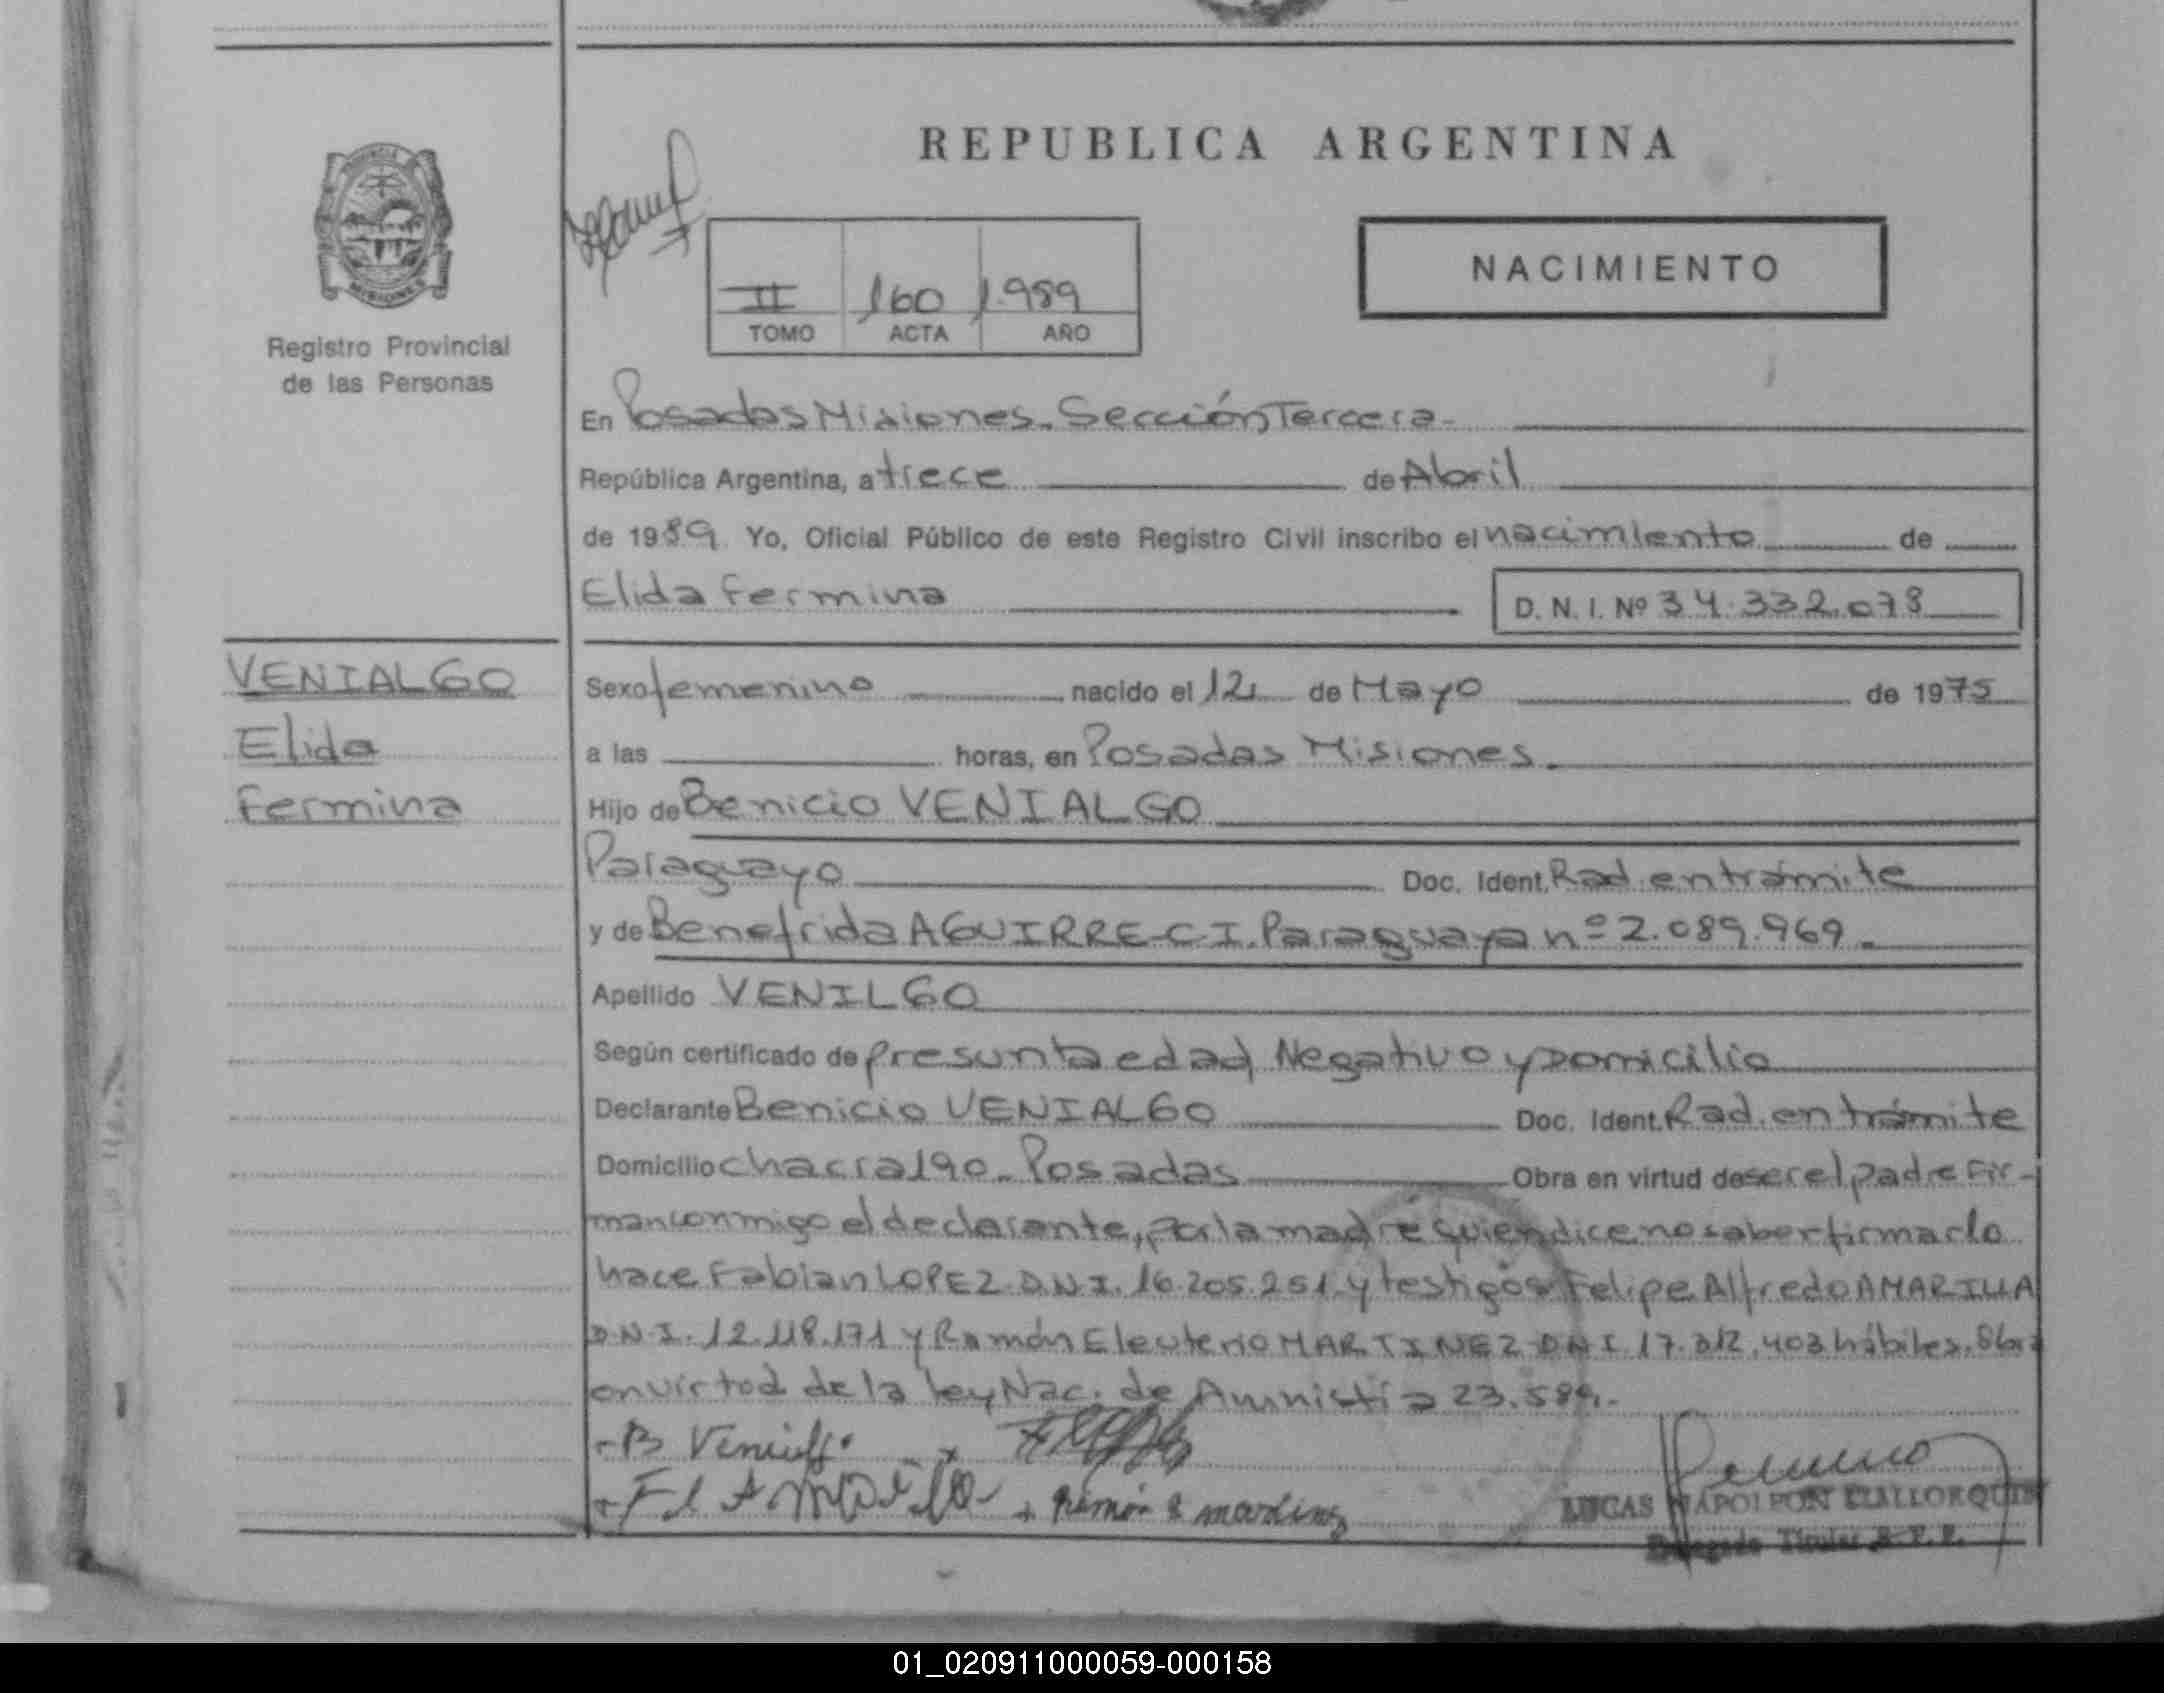 REPUBLICA ARGENTINA
NACIMIENTO
II 160 1.989
TOMO ACTA AÑO
Registro Provincial
de las Personas
En Posadas Misiones. Sección Tercera.
República Argentina, a trece de Abril
de 1989. Yo, Oficial Público de este Registro Civil inscribo el nacimiento de
Elida Fermina D. N. I. Nº 34.332.078
VENIALGO
Elida
Fermina
Sexo femenino nacido el 12 de Mayo de 1975
a las horas, en Posadas Misiones.
Hijo de Benicio VENIALGO
Paraguayo Doc. Ident. Rad. en trámite
y de Benefrida AGUIRRE-C.I. Paraguaya nº 2.089.969.
Apellido VENILGO
Según certificado de presunta edad, Negativo y Domicilio
Declarante Benicio VENIALGO Doc. Ident. Rad. en trámite
Domicilio chacra 190. Posadas Obra en virtud de ser el padre Fir-
man conmigo el declarante, por la madre quien dice no saber firmar lo
hace Fabian LOPEZ D.N.I. 16.205.251 y testigos Felipe Alfredo AMARILLA
D.N.I. 12.118.171 y Ramón Eleuterio MARTINEZ D.N.I. 17.312.403 hábiles. Obra
en virtud de la ley Nac. de Amnistía 23.589.-
LUCAS NAPOLEON
Delegado Titular R.P.P.
01_020911000059-000158